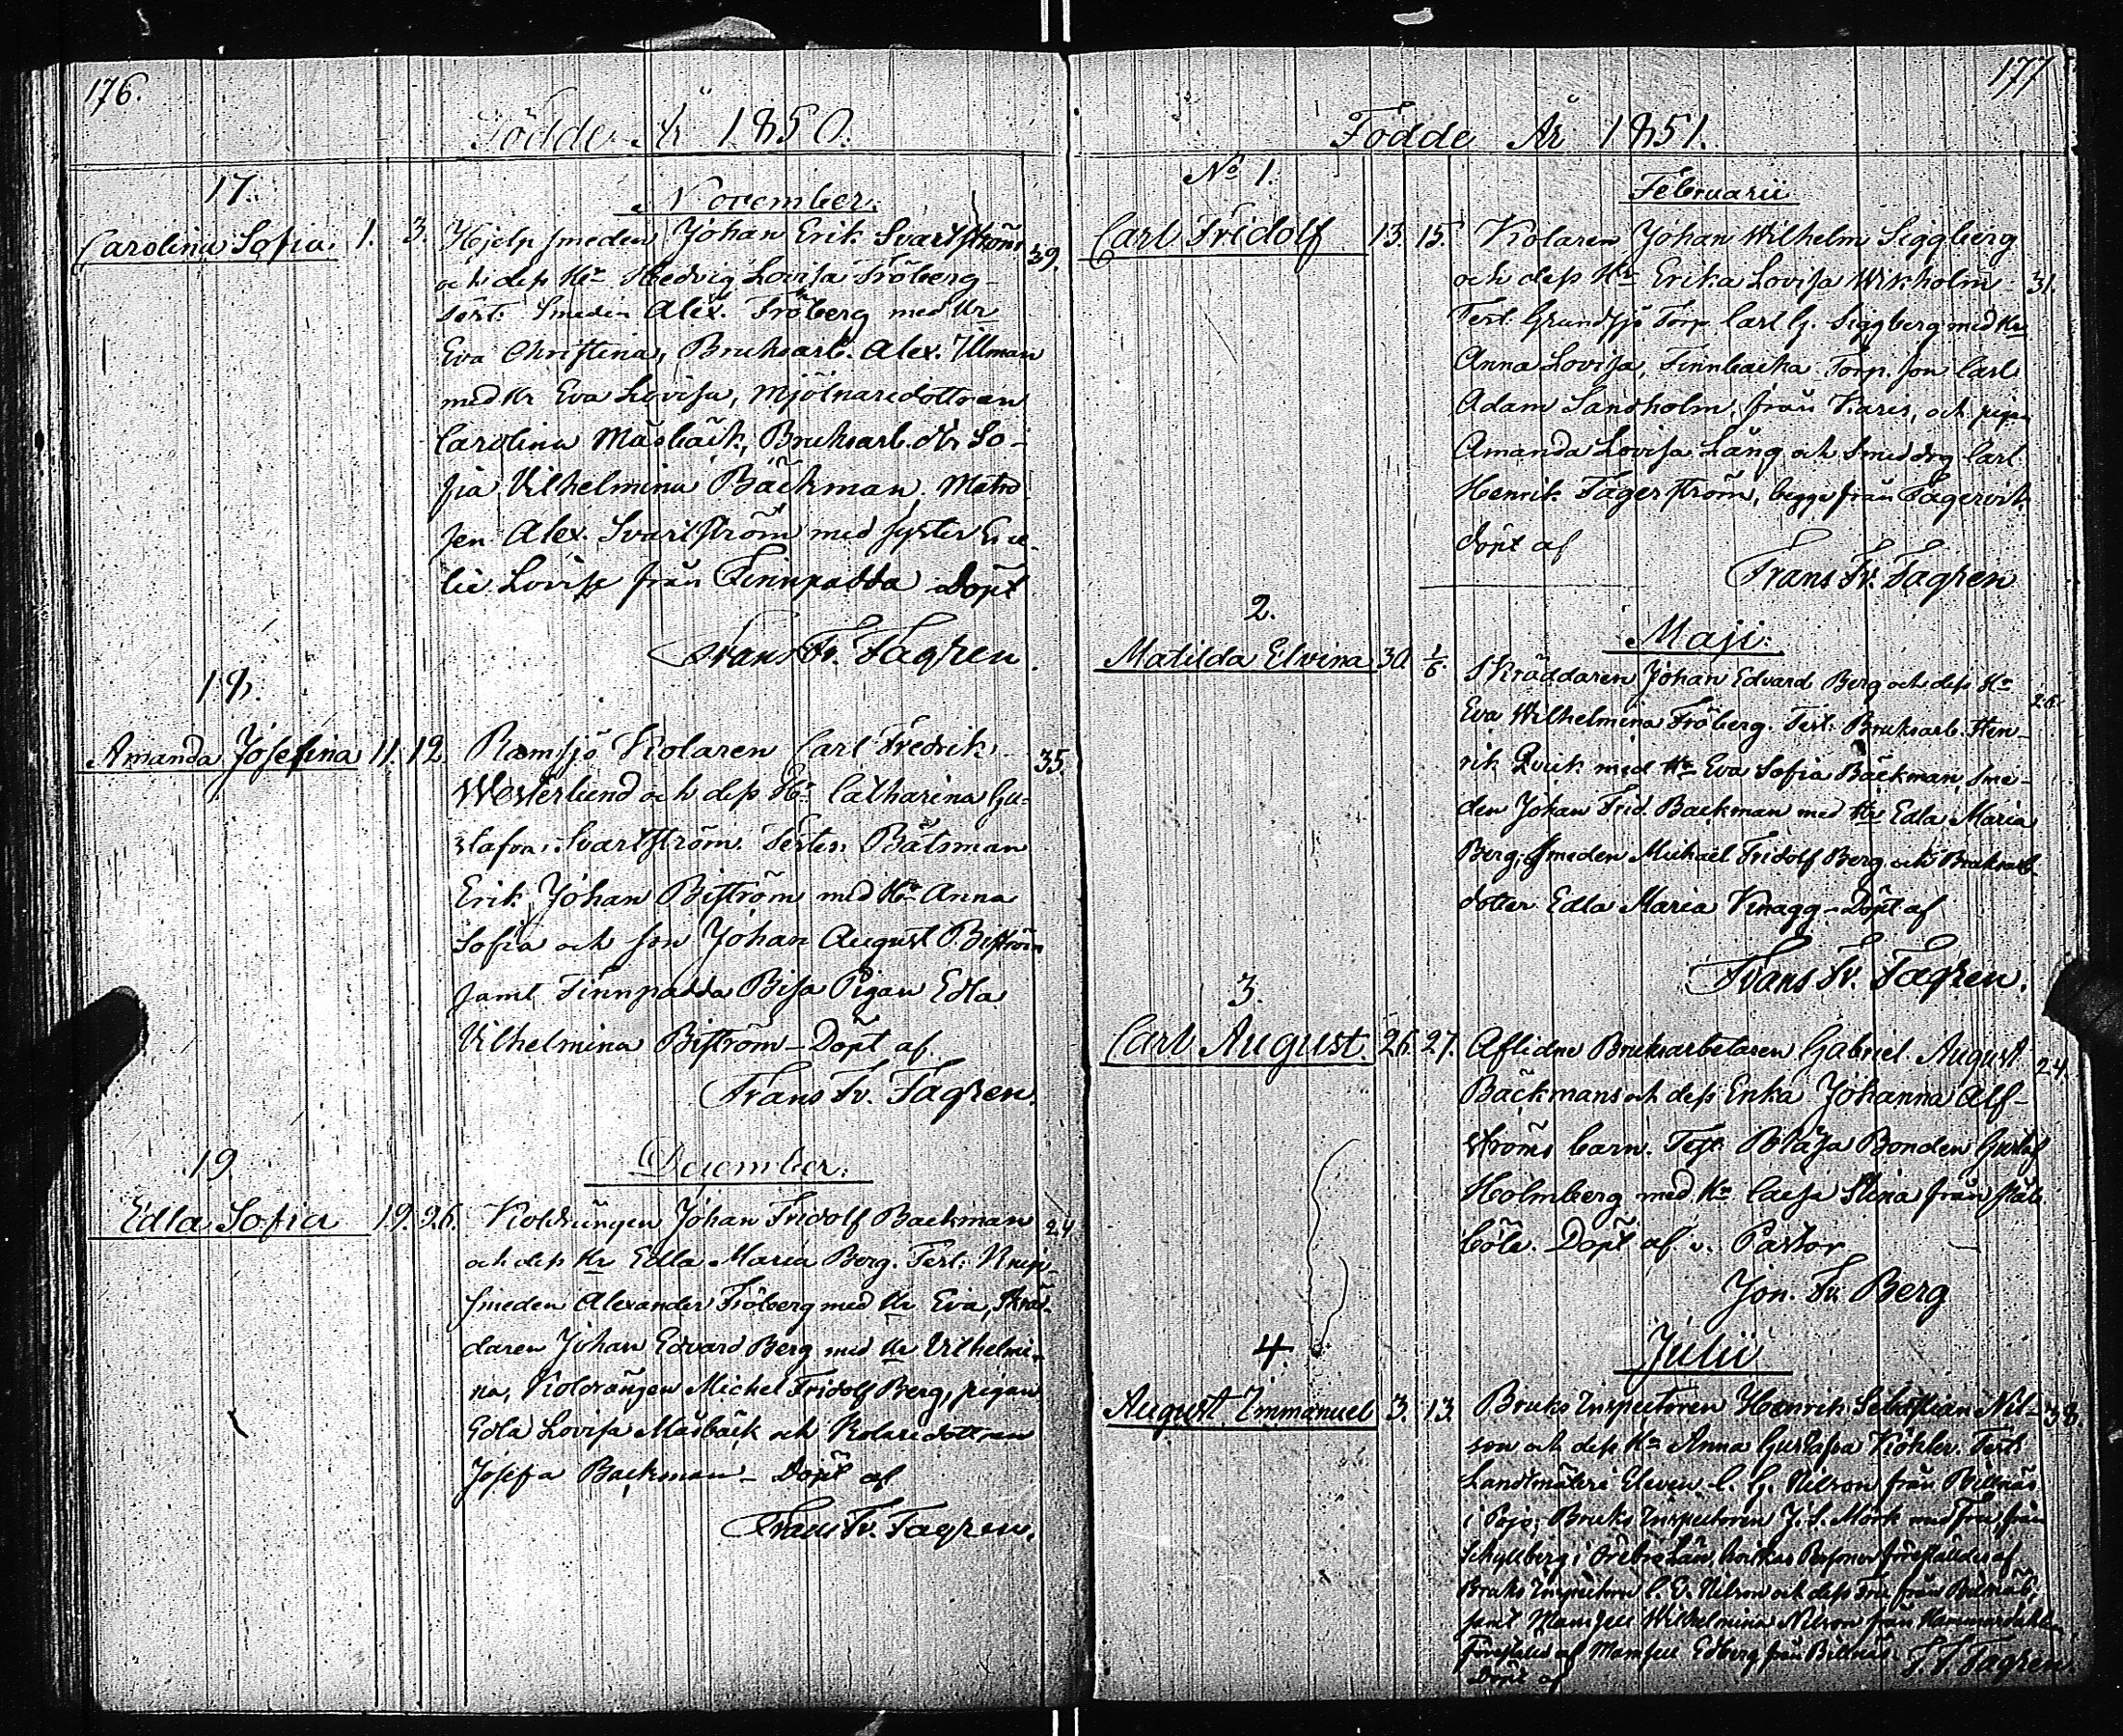 176.
Födde År 1850.
17.
November.
Carolina Sofia. 1. 3. Hjelpsmeden Johan Erik Svartström 39.
och dess Hr Hedvig Lovisa Fröberg
Test: Smeden Alex. Fröberg med Hr
Eva Christina, Bruksarb. Alex. Illman
med Hr Eva Lovisa, Mjölnaredottren
Carolina Måsbäck, Bruksarb. dtr So-
fia Vilhelmina Bäckman, Matro
sen Alex. Svartström med syster Eme-
lie Lovisa från Finnpadda Döpt
Frans Fr. Fagren
18.
Amanda Josefina 11. 12. Ramsjö Kolaren Carl Fredrik 35.
Westerlund och dess Hr Catharina Gu-
stafva Svartström. Testes: Båtsman
Erik Johan Biström med Hr Anna
Sofia och son Johan August Biström
samt Finnpadda Bisa Pigan Edla
Vilhelmina Biström – Döpt af
Frans Fr. Fagren.
19.
December.
Edla Sofia 19. 26. Koldrängen Johan Fridolf Backman 24
och dess Hr Edla Maria Berg. Test: Knip-
smeden Alexander Fröberg med Hr Eva, Skräd-
daren Johan Edvard Berg med Hr Vilhelmi-
na, Koldrängen Michel Fridolf Berg, pigan
Edla Lovisa Måsbäck och Kolaredottren
Josefa Backman – Döpt af
Frans Fr. Fagren.
177
Födde År 1851.
No 1.
Februarii
Carl Fridolf 13. 15. Kolaren Johan Wilhelm Siggberg
och dess Hr Erika Lovisa Wikholm 31.
Test: Grundsjö Torp. Carl G. Siggberg med Hr
Anna Lovisa, Finnbacka Torp. son Carl
Adam Sandholm, från Karis, och pigan
Amanda Lovisa Lång och Smeddrg Carl
Henrik Fagerström, begge från Fagervik
döpt af
Frans Fr. Fagren
2.
Maji.
Matilda Elvina 30. 1/6. Skräddaren Johan Edvard Berg och dess Hr 26.
Eva Wilhelmina Fröberg. Test: Bruksarb. Hen-
rik Qvick med Hr Eva Sofia Bäckman, Sme-
den Johan Frid. Backman med Hr Edla Maria
Berg, Smeden Michael Fridolf Berg och Bruksarb.
dotter Edla Maria Knagg – Döpt af
Frans Fr. Fagren.
3.
Carl August. 26. 27. Aflidne Bruksarbetaren Gabriel August 24.
Bäckmans och dess Enka Johanna Alf-
ströms barn. Test: Bläsa Bonden Gustaf
Holmberg med Hr Caesa Stina från
böle. Döpt af v. Pastor
Jon. Fr. Berg
4.
Julii
August Immanuel 3. 13. Bruks Inspectoren Henrik Sebastian Nil- 38.
son och dess Hr Anna Gustafva Köhler. Test:
Landtmäteri Eleven C. G. Nilson från Billnäs
i Pojo, Bruks Inspectoren J. S. Mörk med Fru från
Schyllberg i Örebro Län, hvilkas Personer föreställdes af
Bruks Inspectoren C. E. Nilson och dess Fru från Billnäs,
samt Mamsell Wilhelmina Nilson från Hammardahlen,
föreställd af Mamsell Edberg från Billnäs.
Döpt af F. F. Fagren